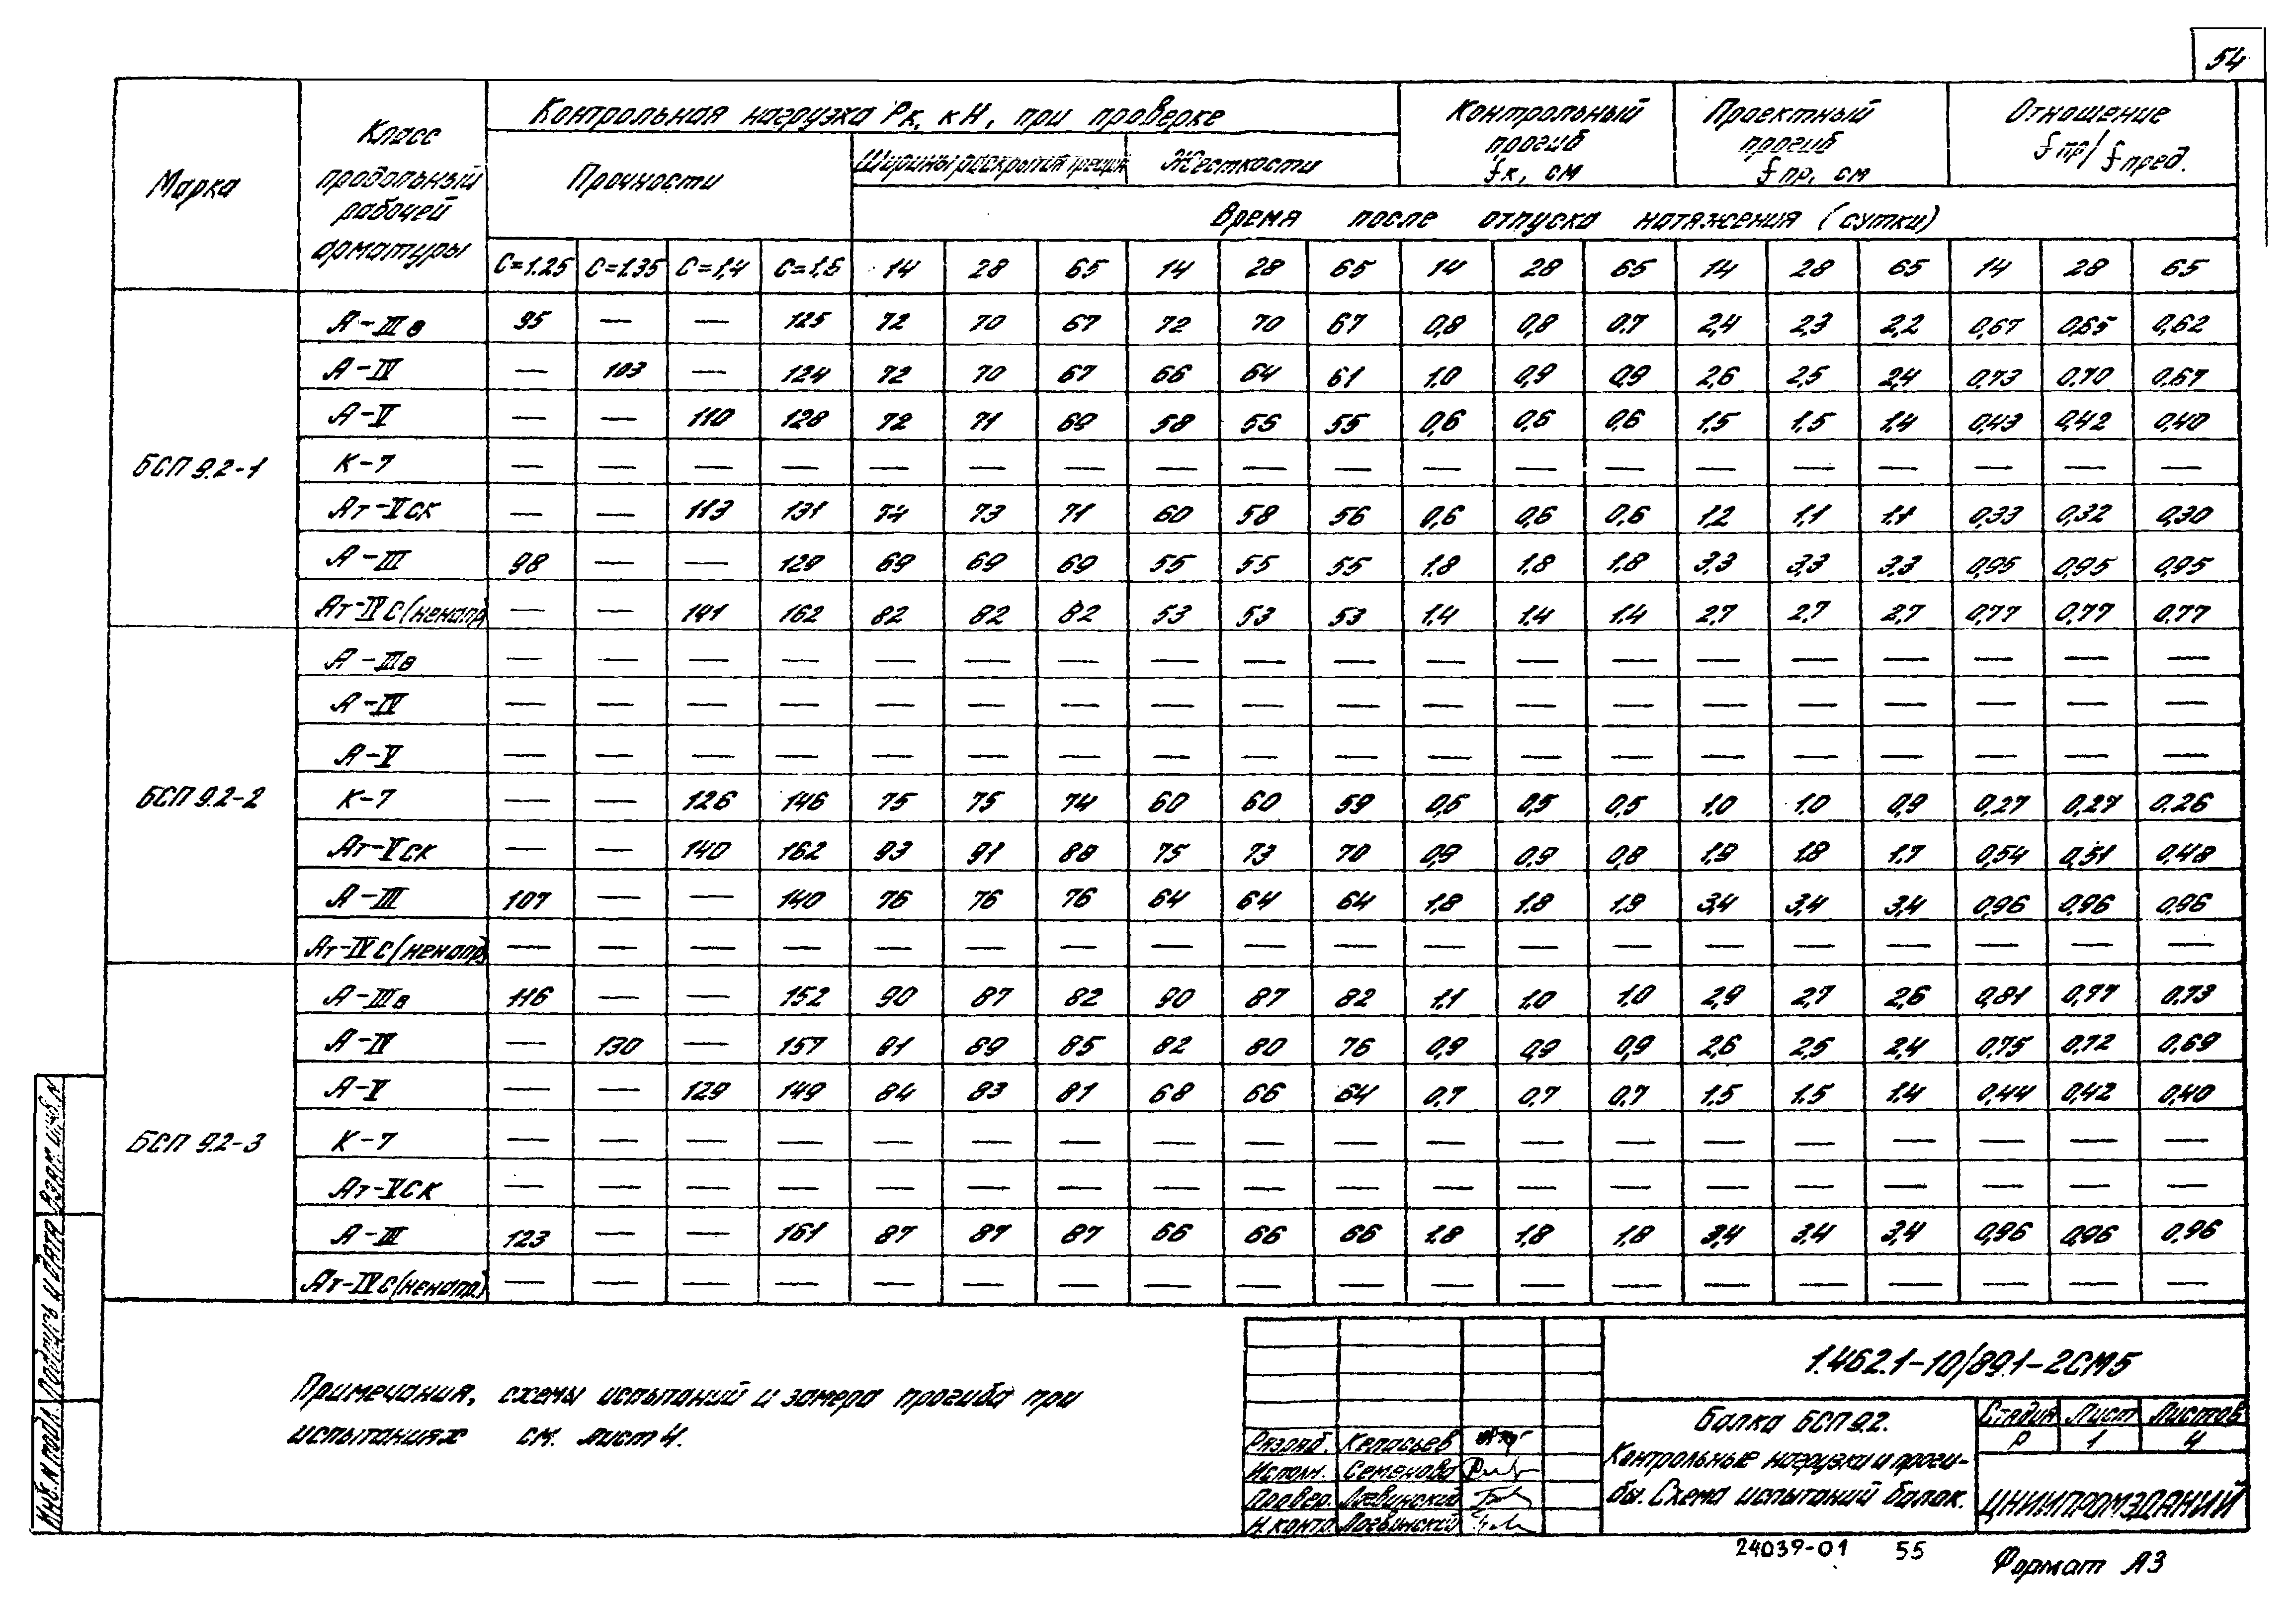 54
Марка
Класс продольный рабочей арматуры
Контрольная нагрузка Рк, кН, при проверке
Контрольный прогиб fк, см
Проектный прогиб fпр, см
Отношение fпр/fпред.
Прочности
Ширины раскрытия трещин
Жесткости
Время после отпуска натяжения (сутки)
С=1.25 С=1.35 С=1,4 С=1,6 14 28 65 14 28 65 14 28 65 14 28 65 14 28 65
БСП 9.2-1
А-IIIв 95 — — 125 72 70 67 72 70 67 0,8 0,8 0.7 2,4 2,3 2,2 0,67 0,65 0,62
А-IV — 103 — 124 72 70 67 66 64 61 1,0 0,9 0,9 2,6 2,5 2,4 0,73 0.70 0,67
А-V — — 110 128 72 71 69 58 56 55 0,6 0,6 0,6 1,5 1,5 1,4 0,43 0,42 0,40
К-7 — — — — — — — — — — — — — — — — — — —
Ат-Vск — — 113 131 74 73 71 60 58 56 0,6 0,6 0,6 1,2 1,1 1,1 0,33 0,32 0,30
А-III 98 — — 129 69 69 69 55 55 55 1,8 1,8 1,8 3,3 3,3 3,3 0,95 0,95 0,95
Ат-IVС(ненапр) — — 141 162 82 82 82 53 53 53 1,4 1,4 1,4 2,7 2,7 2,7 0,77 0,77 0,77
БСП 9.2-2
А-IIIв — — — — — — — — — — — — — — — — — — —
А-IV — — — — — — — — — — — — — — — — — — —
А-V — — — — — — — — — — — — — — — — — — —
К-7 — — 126 146 75 75 74 60 60 59 0,5 0,5 0,5 1,0 1,0 0,9 0,27 0,27 0.26
Ат-Vск — — 140 162 93 91 88 75 73 70 0,9 0,9 0,8 1,9 1,8 1,7 0,54 0,51 0,48
А-III 107 — — 140 76 76 76 64 64 64 1,8 1,8 1,9 3,4 3,4 3,4 0,96 0,96 0,96
Ат-IVС(ненапр) — — — — — — — — — — — — — — — — — — —
БСП 9.2-3
А-IIIв 116 — — 152 90 87 82 90 87 82 1,1 1,0 1,0 2,9 2,7 2,6 0,81 0,77 0.73
А-IV — 130 — 157 91 89 85 82 80 76 0,9 0,9 0,9 2,6 2,5 2,4 0,75 0,72 0,69
А-V — — 129 149 84 83 81 68 66 64 0,7 0,7 0,7 1,5 1.5 1.4 0,44 0,42 0,40
К-7 — — — — — — — — — — — — — — — — — — —
Ат-VСК — — — — — — — — — — — — — — — — — — —
А-III 123 — — 161 87 87 87 66 66 66 1,8 1,8 1,8 3,4 3,4 3,4 0,96 0,96 0,96
Ат-IVС(ненапр) — — — — — — — — — — — — — — — — — — —
Примечания, схемы испытаний и замера прогиба при
испытаниях см. лист 4.
1.462.1-10/89.1-2СМ5
Балка БСП 9.2.
Контрольные нагрузки и проги-
бы. Схема испытаний балок.
Стадия Лист Листов
Р 1 4
ЦНИИПРОМЗДАНИЙ
Разраб. Кепасьев
Исполн. Семенова
Провер. Логвинский
Н.контр. Логвинский
24039-01 55
Формат А3
Инв.N подл. Подпись и дата Взам. инв.N